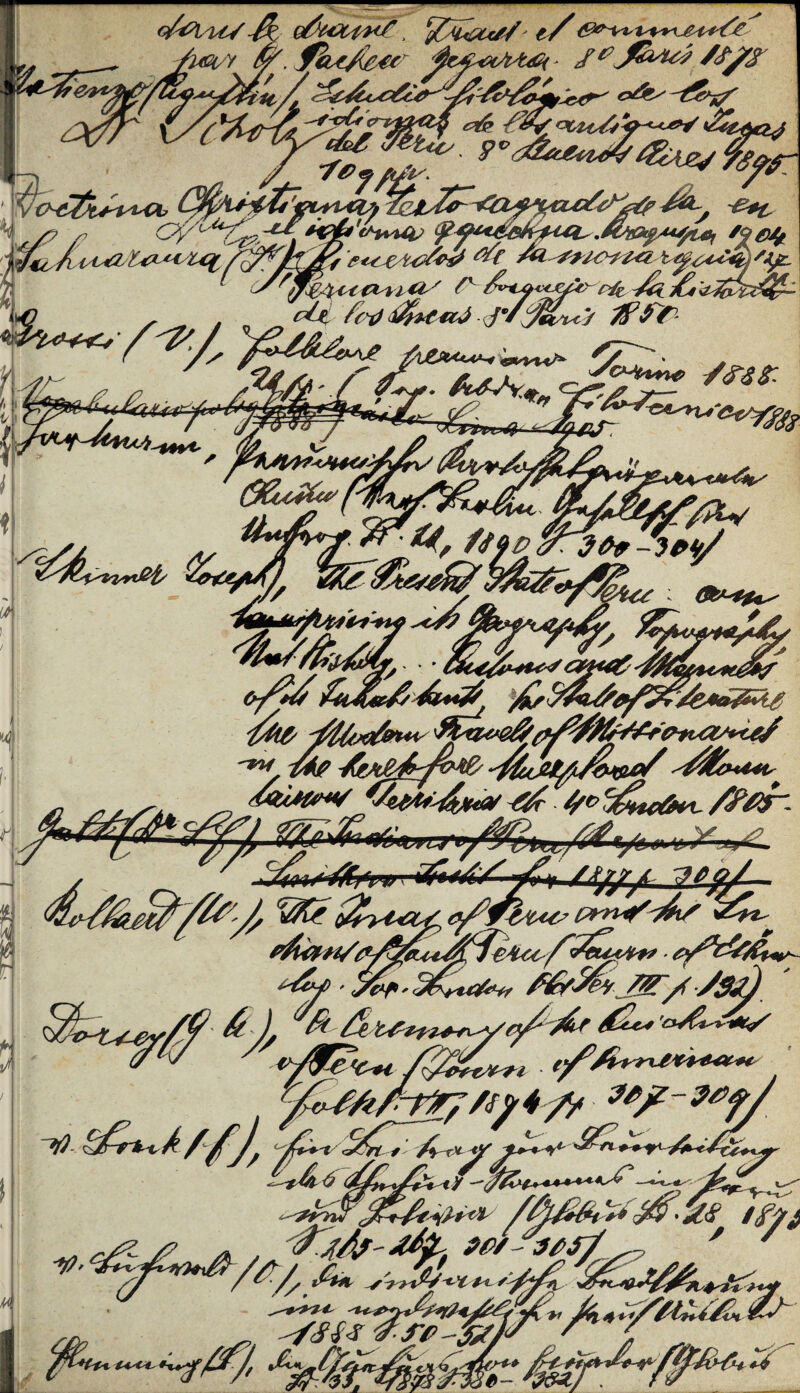 dans le drame. Trad. et commenté
par G. Pacheco Zegarra. 8° Paris 1878
Patienzo (Agustin), Estudio filológico de los
idiomas de los antiguos Ingas
del Perú. 8° Buenos Aires 1895.
109 pp.
Doctrina Christiana, texto sagrado de la, en
el idioma qquechua. Arequipa 1904
Sahuaraura (J.), Ricuerdos de la monarquia
Peruana o bosquejo de la historia
de los Incas. 8° Paris 1850
Grossi (V.), Folklore peruviano Torino 1888.
Vocabulario poliglota incaico Lima 1905
Hartmann, Peruanische Kartoffelpräparate
(Verh. Berlin. Gesellsch. für
Anthrop. Bd. 22, 1890 S. 300-304)
Skinner Joseph), The Present State of Peru: com
prising its Geography, Topography,
Nat. History, .. Customs and Manners
of its Inhabitants, the State of Literature
the Modern Travels of Missionaries
in the heretofore Unexplored Moun
tainous Territories etc. 4° London 1805.
Galt (Dr. F. L.), The Indians of Peru (Report of
Smithson. Instit. for 1877 p. 309)
Bollaert (W.), The Incas of Peru and the In
dians of South Peru (Journ. of Ethno
log. Soc. London Old Ser. III p. 132)
Dorsey (G. A.), A Ceremony of the Quichuas
of Peru (Journ. of American
Folkl. VII, 1894 pp. 307-309)
v. Boeck (E.), Ein Beitrag zur Beurteilung
des Quechua-Stammes in Peru
und Bolivia (Globus Bd. 28, 1875
S. 265-267, 301-305)
v. Buchwald (O.), die indianische Bevölkerung
im nordwestlichen Peru (Ausland
1888 S. 50-52)
Flemming (B.), die von Ecuador (Globus
Bd. 33, 1878 S. 380-382)